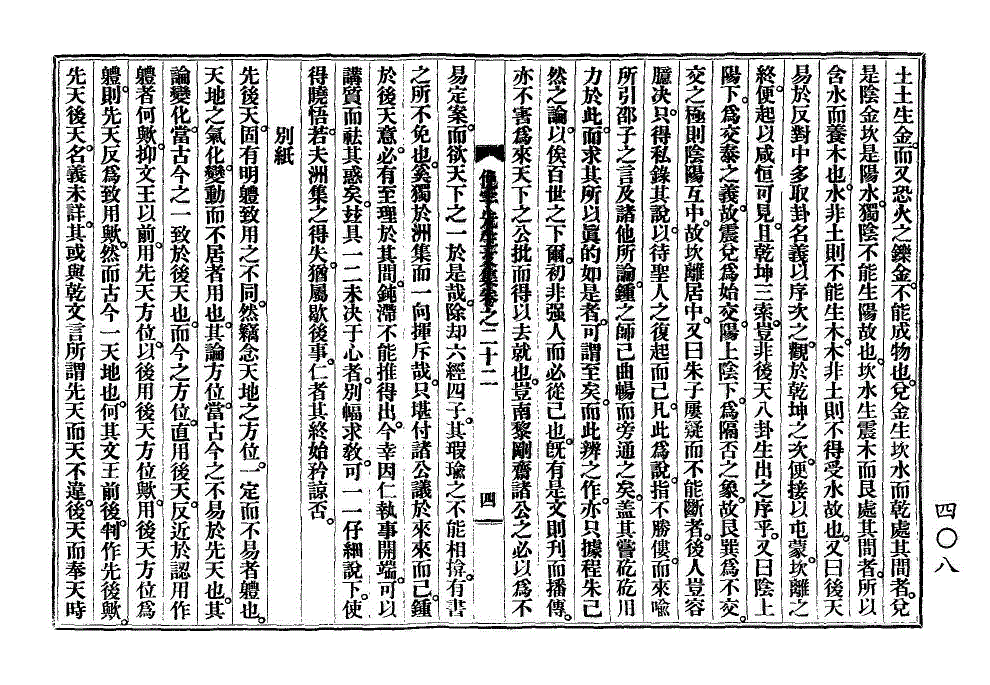 土土生金。而又恐火之鑠金。不能成物也。兌金生坎水而乾處其間者。兌
是陰金坎是陽水。獨陰不能生陽故也。坎水生震木而艮處其間者。所以
含水而養木也。水非土則不能生木。木非土則不得受水故也。又曰後天
易於反對中多取卦名義。以序次之。觀於乾坤之次。便接以屯蒙。坎離之
終。便起以咸恒可見。且乾坤三索。豈非後天八卦生出之序乎。又曰陰上
陽下。爲交泰之義。故震兌爲始交。陽上陰下。爲隔否之象。故艮巽爲不交
交之極則陰陽互中。故坎離居中。又曰朱子屢疑而不能斷者。後人豈容
臆决。只得私錄其說。以待聖人之復起而已。凡此爲說。指不勝僂。而來喩
所引邵子之言及諸他所論。鍾之師已曲暢而旁通之矣。盖其嘗矻矻用
力於此。而求其所以眞的如是者。可謂至矣。而此辨之作。亦只據程朱已
然之論。以俟百世之下爾。初非强人而必從己也。旣有是文則刊而播傳。
亦不害爲來天下之公批而得以去就也。豈南黎剛齋諸公之必以爲不
先生文集卷之二十二
四
易定案。而欲天下之一於是哉。除却六經四子。其瑕瑜之不能相揜。有書
之所不免也。奚獨於洲集而一向揮斥哉。只堪付諸公議於來來而已。鍾
於後天意。必有至理於其間。鈍滯不能推得出。今幸因仁執事開端。可以
講質而祛其惑矣。玆具一二未决于心者。別幅求敎。可一一仔細說下。使
得曉悟。若夫洲集之得失。猶屬歇後事。仁者其終始矜諒否。
別紙
先後天。固有明軆致用之不同。然竊念天地之方位一定而不易者軆也。
天地之氣化。變動而不居者用也。其論方位。當古今之不易於先天也。其
論變化。當古今之一致於後天也。而今之方位。直用後天。反近於認用作
軆者何歟。抑文王以前。用先天方位。以後用後天方位歟。用後天方位爲
軆。則先天反爲致用歟。然而古今一天地也。何其文王前後。判作先後歟。
先天後天。名義未詳。其或與乾文言所謂先天而天不違。後天而奉天時
四〇八